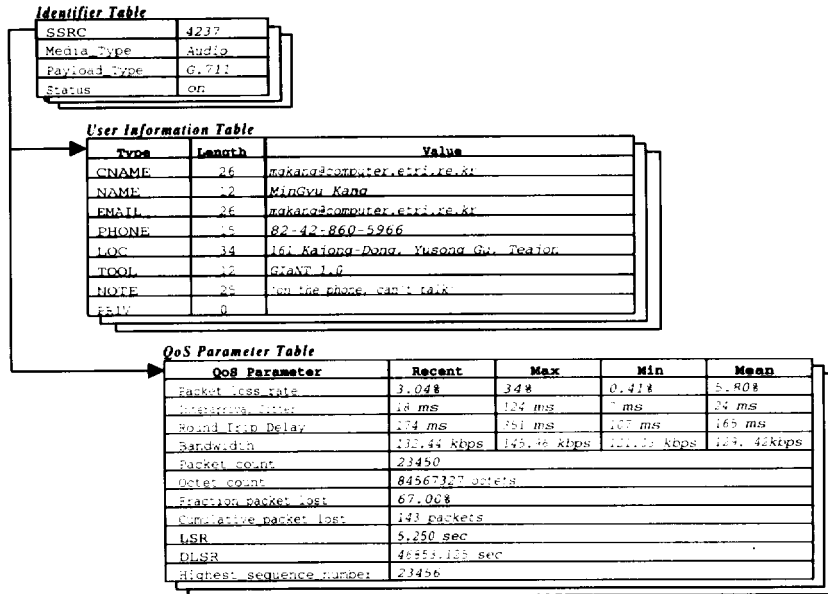 Identifier Table
SSRC 4237
Media_Type Audio
Payload_Type G.711
Status on
User Information Table
Type Length Value
CNAME 26 mgkang@computer.etri.re.kr
NAME 12 MinGyu Kang
EMAIL 26 mgkang@computer.etri.re.kr
PHONE 15 82-42-860-5966
LOC 34 161 Kajong-Dong, Yusong Gu, Teajon
TOOL 12 GIaNT 1.0
NOTE 25 "on the phone, can't talk"
PRIV 0
QoS Parameter Table
QoS Parameter Recent Max Min Mean
Packet loss_rate 3.04% 34% 0.41% 5.80%
Interarrival Jitter 18 ms 124 ms ms 24 ms
Round Trip Delay 174 ms 351 ms 107 ms 165 ms
Bandwidth 132.44 kbps 145.46 kbps kbps 129. 42kbps
Packet count 23450
Octet count 84567327 octets
Fraction packet lost 67.00%
Cumulative packet lost 143 packets
LSR 5.250 sec
DLSR 46853.125 sec
Highest sequence number 23456